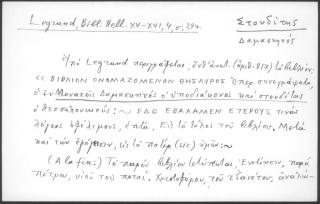 Legrand, Bibl. Hell. XV-XVI, 4, σ. 294.
Στουδίτης
Δαμασκηνός
Legrand περιγράφεται (ἀριθ. 815) βιβλίον:
<< ΒΙΒΛΙΟΝ ΟΝΟΜΑΖΟΜΕΝΟΝ ΘΗΣΑΥΡΟΣ Ὅπερ συνεγράψατο
ὁ ἐν Μοναχοῖς Δαμασκηνὸς ὁ ὑποδιάκονος καὶ στουδίτης
ὁ θεσσαλονικεύς: ~ ΕΔΩ ΕΒΑΛΑΜΕΝ ΕΤΕΡΟΥΣ τινὰς
λόγους ὠφελίμους, ἑπτά. Εἰς τὸ τέλος τοῦ βιβλίου. Μετὰ
καὶ τὴν ἐξήγησιν, εἰς τὸ πάτερ (sic) ἡμῶν: ~
(Αla fin:) Τὸ παρὸν βιβλίον Ἐνετίῃσιν, παρὰ
πέτρου, υἱοῦ τοῦ ποτε. Χριστοφόρου, τοῦ τζανέτου,